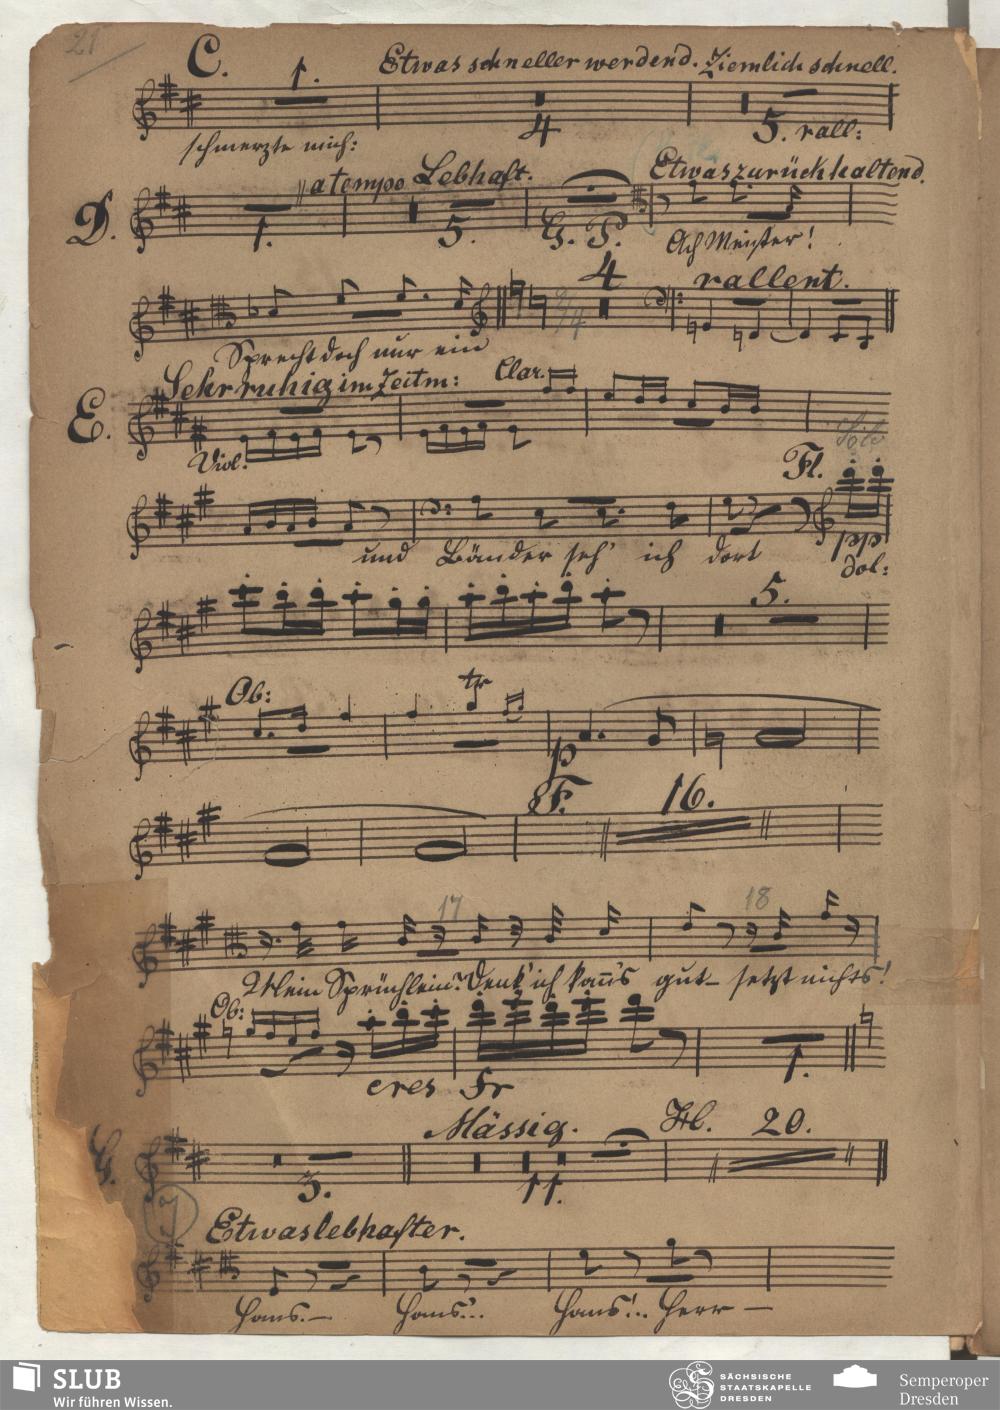 21
C. 1. Etwas schneller werdend. Ziemlich schnell.
4 5. rall:
schmerzte mich:
a tempo Lebhaft. Etwas zurückhaltend.
D. 1. 5. G. P. Ach Meister!
4 rallent.
9/4
Sprecht doch nur ein
Sehr ruhig im Zeitm: Clar.
E.
Viol. Fl.
und Bänder seh' ich dort pp
dol:
5.
Ob: tr
p
F. 16.
17 18
Mein Sprüchlein? Denk' ich kann's gut – setzt nichts!
Ob:
cres fr 1.
Mässig. H. 20.
G. 3. 11.
Etwas lebhafter.
Hans. – Hans'.. Hans!.. Herr –
SLUB
Wir führen Wissen.
SÄCHSISCHE
STAATSKAPELLE
DRESDEN
Semperoper
Dresden